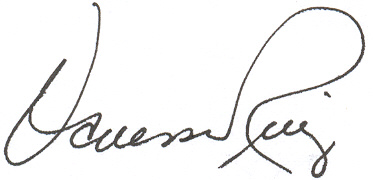 Vanessa Ruiz